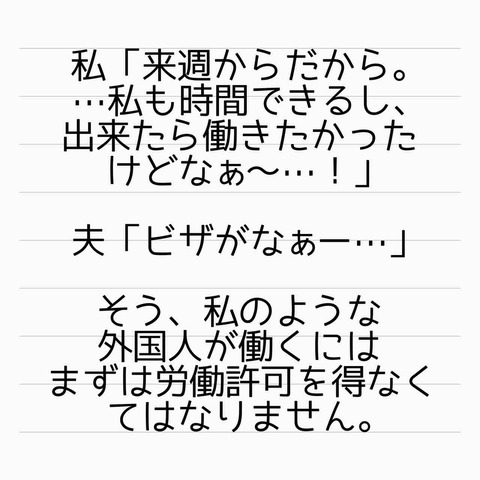 私「来週からだから。
…私も時間できるし、
出来たら働きたかった
けどなぁ〜…！」
夫「ビザがなぁー…」
そう、私のような
外国人が働くには
まずは労働許可を得なく
てはなりません。